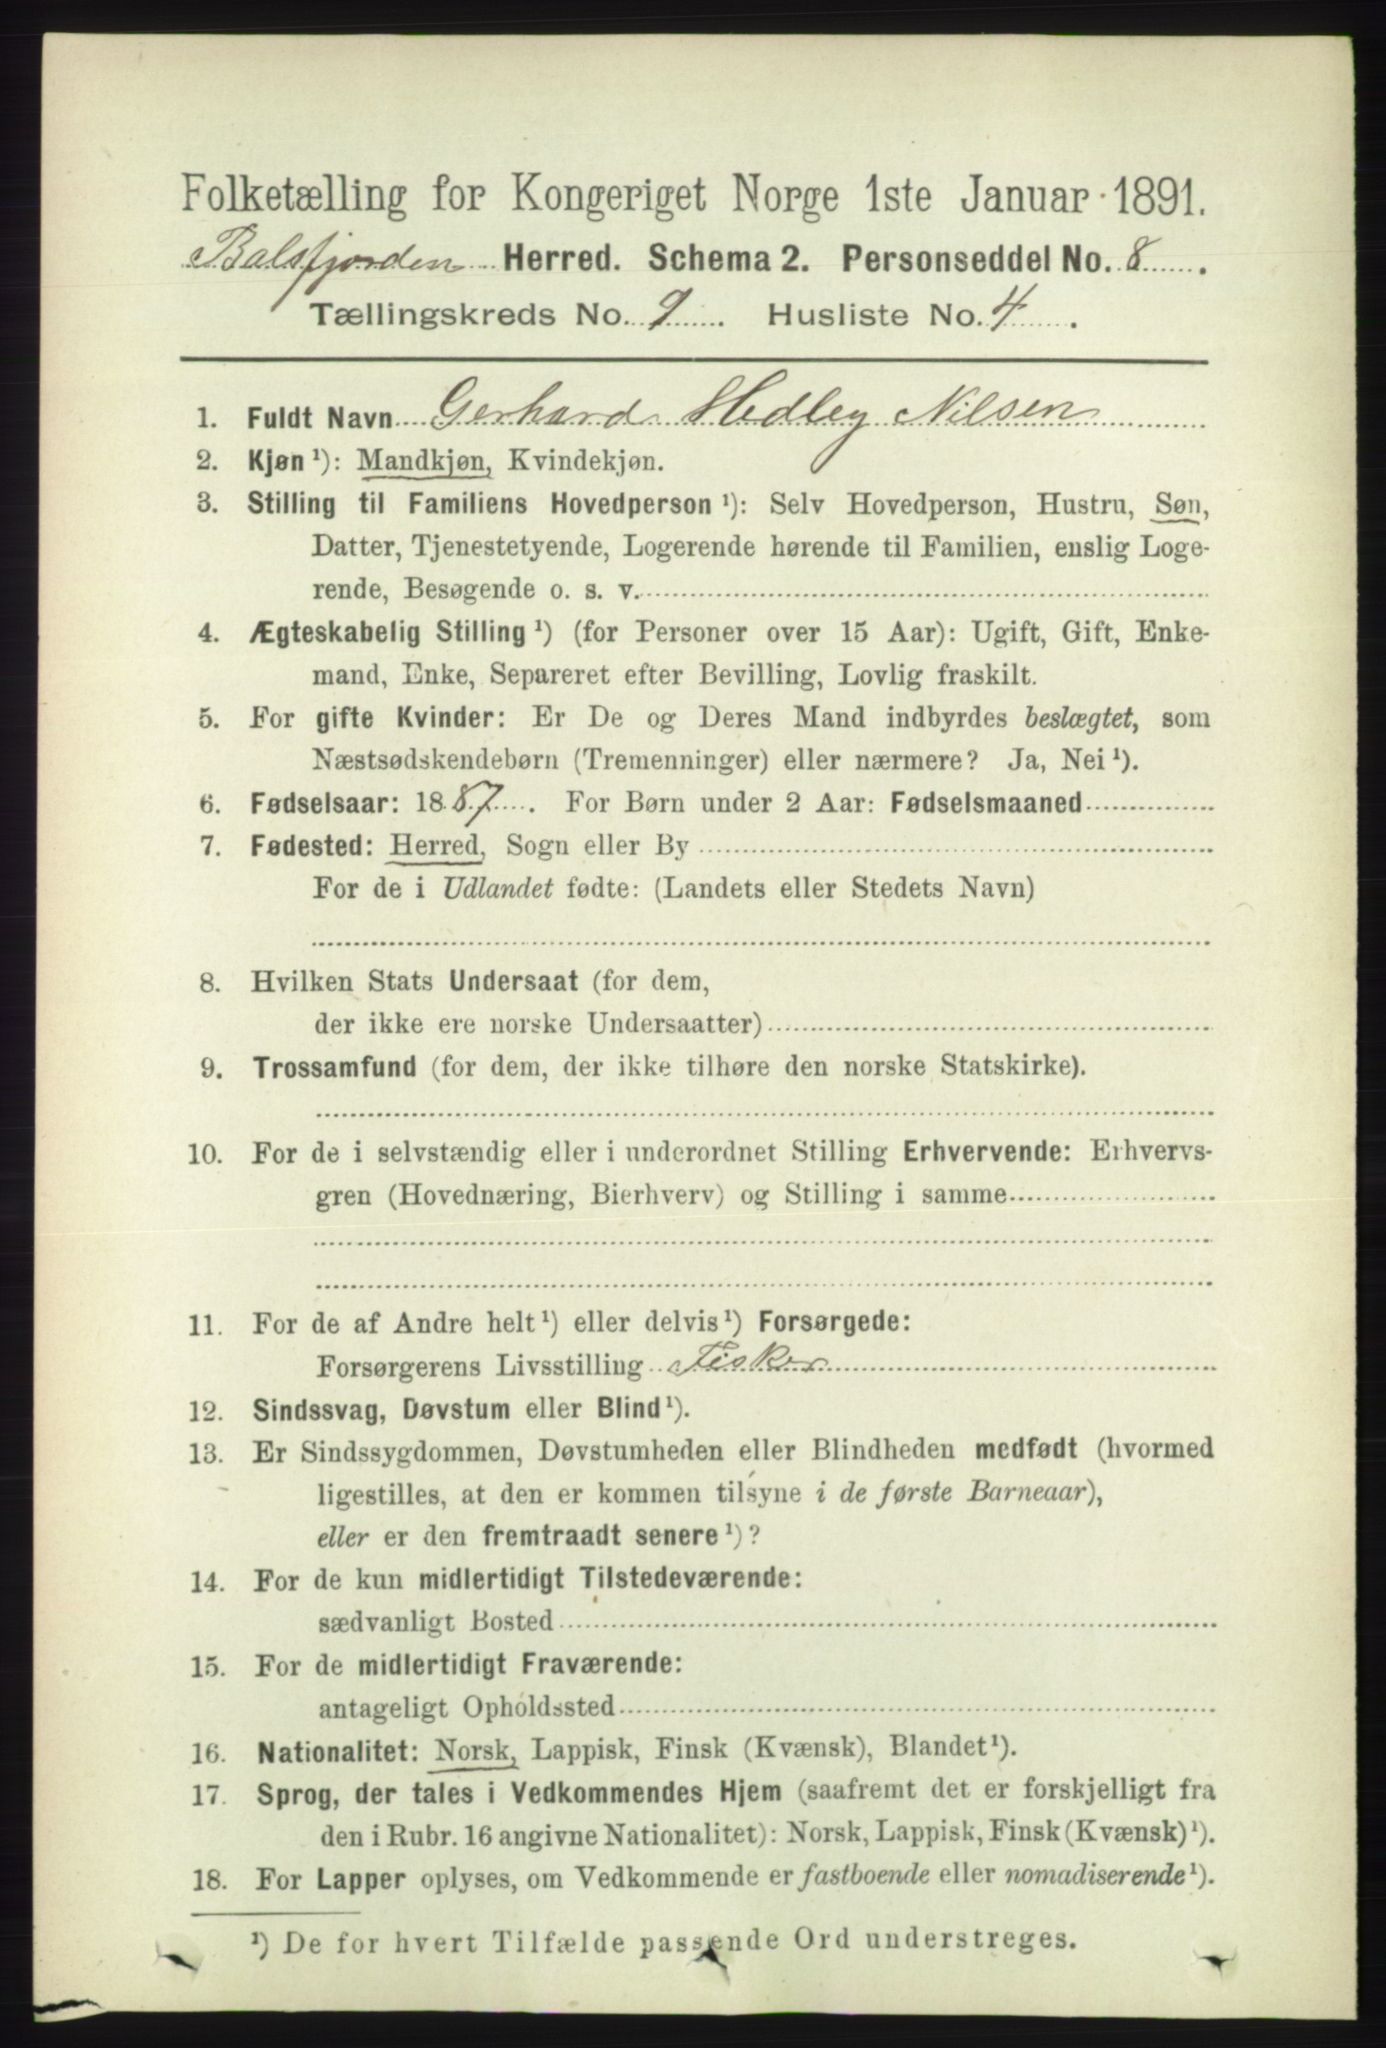 Folketælling for Kongeriget Norge 1ste Januar 1891.
Balsfjorden Herred. Schema 2. Personseddel No. 8
Tællingskreds No. 9 Husliste No. 4
1. Fuldt Navn Gerhard Hedley Nilsen
2. Kjøn ¹): Mandkjøn, Kvindekjøn.
3. Stilling til Familiens Hovedperson ¹): Selv Hovedperson, Hustru, Søn,
Datter, Tjenestetyende, Logerende hørende til Familien, enslig Loge-
rende, Besøgende o. s. v.
4. Ægteskabelig Stilling ¹) (for Personer over 15 Aar): Ugift, Gift, Enke-
mand, Enke, Separeret efter Bevilling, Lovlig fraskilt.
5. For gifte Kvinder: Er De og Deres Mand indbyrdes beslægtet, som
Næstsødskendebørn (Tremenninger) eller nærmere? Ja, Nei ¹).
6. Fødselsaar: 1887. For Børn under 2 Aar: Fødselsmaaned
7. Fødested: Herred, Sogn eller By
For de i Udlandet fødte: (Landets eller Stedets Navn)
8. Hvilken Stats Undersaat (for dem,
der ikke ere norske Undersaatter)
9. Trossamfund (for dem, der ikke tilhøre den norske Statskirke).
10. For de i selvstændig eller i underordnet Stilling Erhvervende: Erhvervs-
gren (Hovednæring, Bierhverv) og Stilling i samme
11. For de af Andre helt ¹) eller delvis ¹) Forsørgede:
Forsørgerens Livsstilling Fisker
12. Sindssvag, Døvstum eller Blind ¹).
13. Er Sindssygdommen, Døvstumheden eller Blindheden medfødt (hvormed
ligestilles, at den er kommen tilsyne i de første Barneaar),
eller er den fremtraadt senere ¹)?
14. For de kun midlertidigt Tilstedeværende:
sædvanligt Bosted
15. For de midlertidigt Fraværende:
antageligt Opholdssted
16. Nationalitet: Norsk, Lappisk, Finsk (Kvænsk), Blandet ¹).
17. Sprog, der tales i Vedkommendes Hjem (saafremt det er forskjelligt fra
den i Rubr. 16 angivne Nationalitet): Norsk, Lappisk, Finsk (Kvænsk) ¹).
18. For Lapper oplyses, om Vedkommende er fastboende eller nomadiserende ¹).
¹) De for hvert Tilfælde passende Ord understreges.